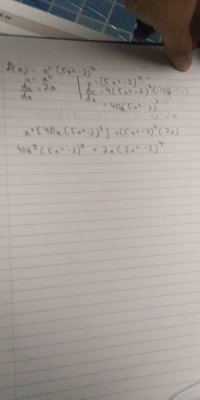 f(x) = x² (5x²-2)⁴
u = x² | v = (5x²-2)⁴
du/dx = 2x | dv/dx = 4(5x²-2)³(10x
= 40x(5x²-2)³
x²[40x(5x²-2)³] + (5x²-2)⁴(2x)
40x³(5x²-2)³ + 2x(5x²-2)⁴